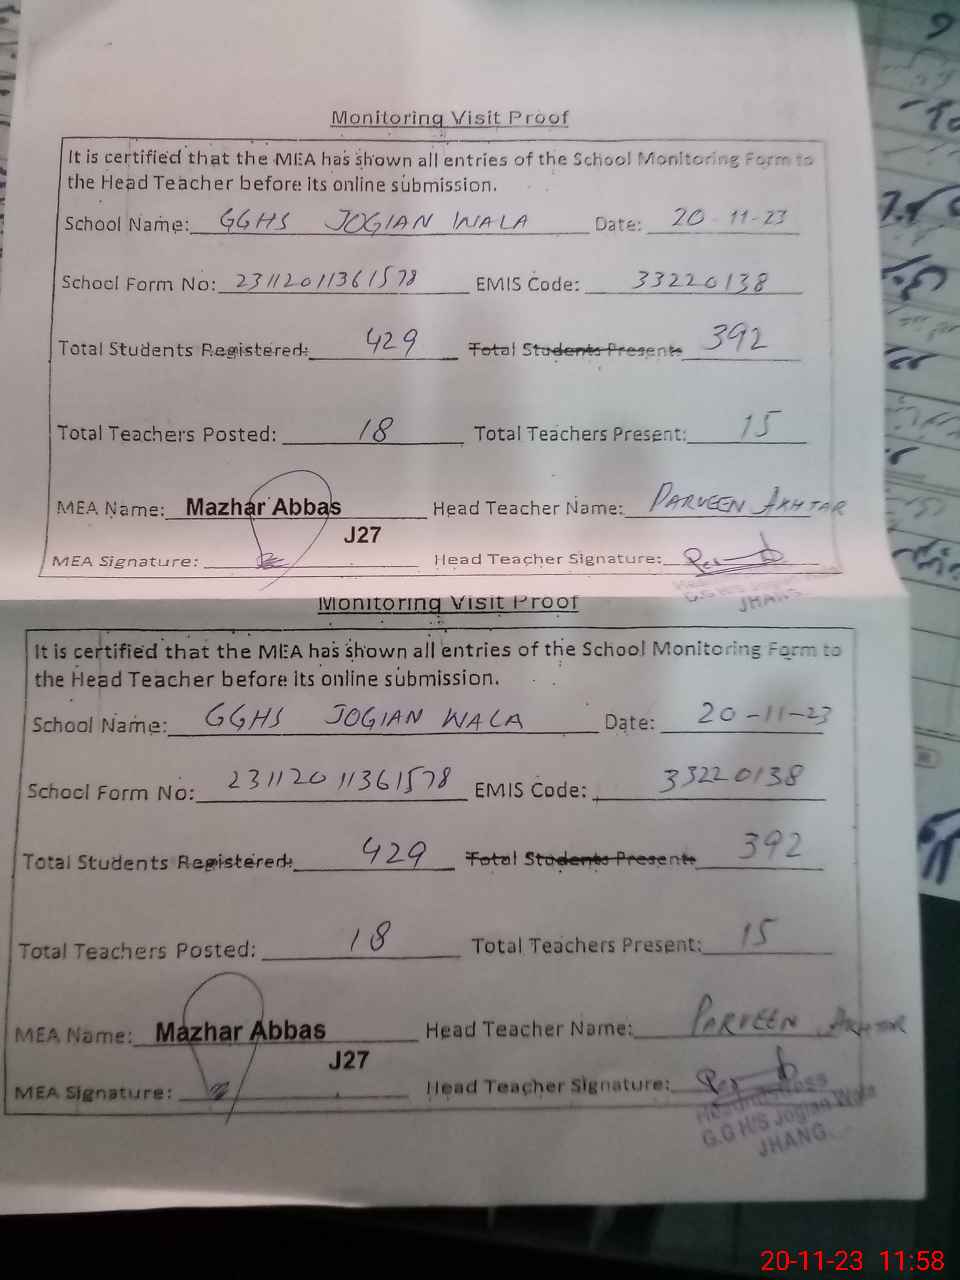 Monitoring Visit Proof
It is certified that the MEA has shown all entries of the School Monitoring Form to
the Head Teacher before its online submission.
School Name: GGHS JOGIAN WALA Date: 20-11-23
School Form No: 23112011361578 EMIS Code: 33220138
Total Students Registered: 429 Total Students Present: 392
Total Teachers Posted: 18 Total Teachers Present: 15
MEA Name: Mazhar Abbas Head Teacher Name: PARVEEN AKHTAR
J27
MEA Signature: Head Teacher Signature:
G.G H/S Jogian Wala
JHANG.
Monitoring Visit Proof
It is certified that the MEA has shown all entries of the School Monitoring Form to
the Head Teacher before its online submission.
School Name: GGHS JOGIAN WALA Date: 20-11-23
School Form No: 23112011361578 EMIS Code: 33220138
Total Students Registered: 429 Total Students Present: 392
Total Teachers Posted: 18 Total Teachers Present: 15
MEA Name: Mazhar Abbas Head Teacher Name: PARVEEN AKHTAR
J27
MEA Signature: Head Teacher Signature:
Headmistress
G.G H/S Jogian Wala
JHANG.
20-11-23 11:58